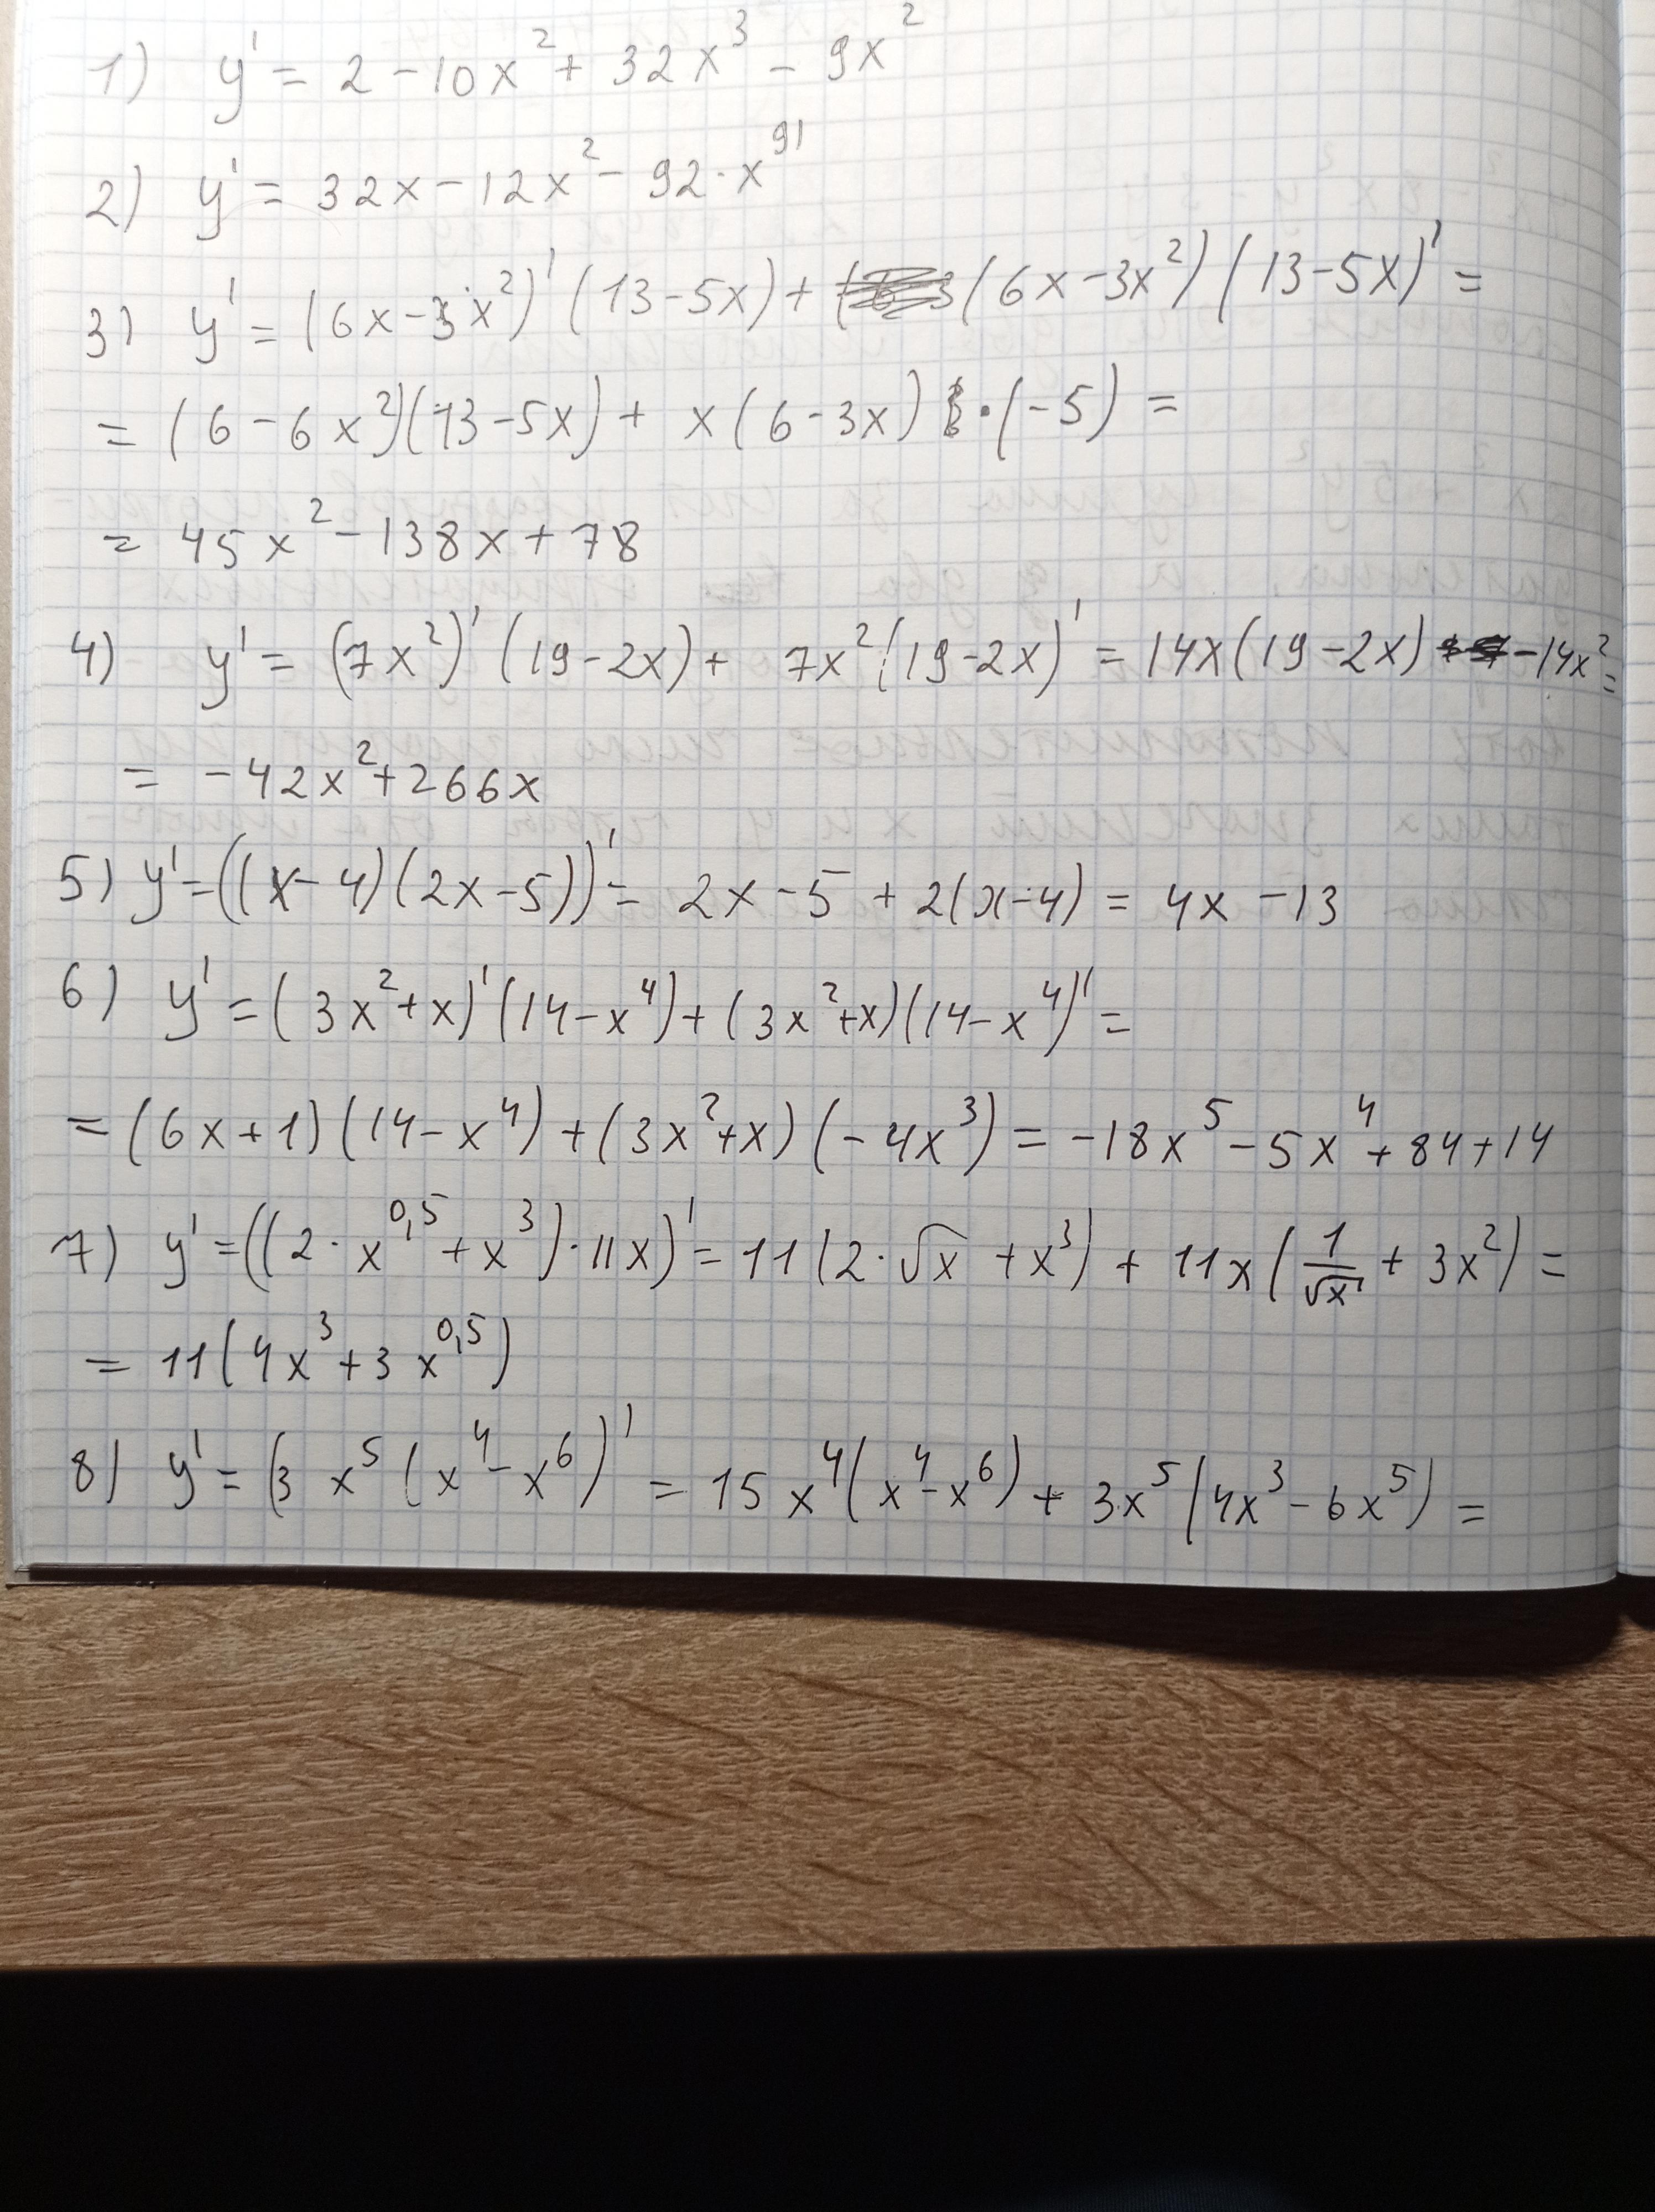 1) y' = 2 - 10x² + 32x³ - 9x²
2) y' = 32x - 12x² - 92·x⁹¹
3) y' = (6x - 3x²)' (13 - 5x) + (6x - 3x²) (13 - 5x)' =
= (6 - 6x²)(13 - 5x) + x(6 - 3x) · (-5) =
= 45x² - 138x + 78
4) y' = (7x²)' (19 - 2x) + 7x² (19 - 2x)' = 14x(19 - 2x) - 14x² =
= -42x² + 266x
5) y' = ((x - 4)(2x - 5))' = 2x - 5 + 2(x - 4) = 4x - 13
6) y' = (3x² + x)' (14 - x⁴) + (3x² + x)(14 - x⁴)' =
= (6x + 1)(14 - x⁴) + (3x² + x)(-4x³) = -18x⁵ - 5x⁴ + 84 + 14
7) y' = ((2 · x^0,5 + x³) · 11x)' = 11(2 · √x + x³) + 11x(1/√x + 3x²) =
= 11(4x³ + 3x^0,5)
8) y' = (3x⁵(x⁴ - x⁶)' = 15x⁴(x⁴ - x⁶) + 3x⁵(4x³ - 6x⁵) =